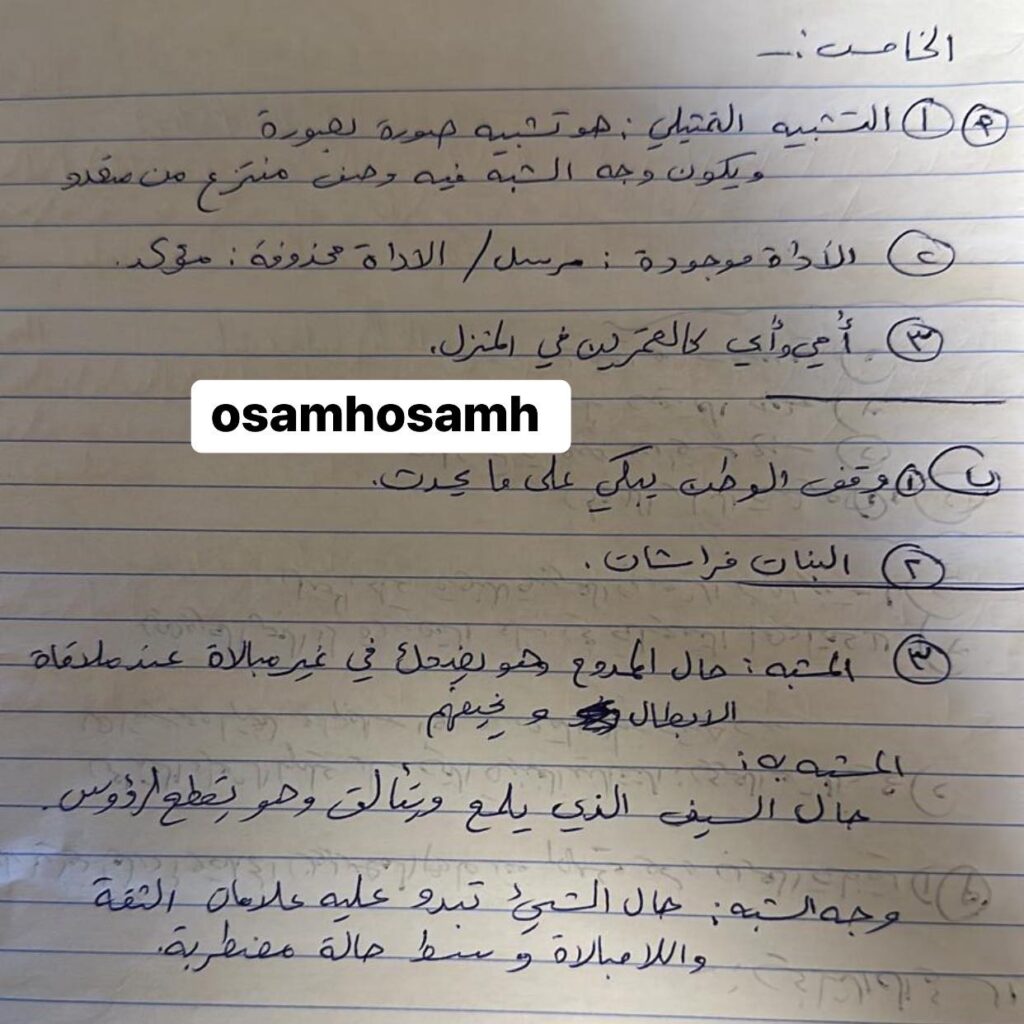 الخامس :-
(P) (1) التشبيه التمثيلي : هو تشبيه صورة بصورة
ويكون وجه الشبه فيه وصف منتزع من متعدد
(2) الأداة موجودة : مرسل / الاداة محذوفة : مؤكد.
(3) أمي وأبي كالعمرين في المنزل.
osamhosamh
(ب) (1) وقف الوطن يبكي على ما يحدث.
(2) البنات فراشات.
(3) المشبه : حال الممدوح وهو يضحك في غير مبالاة عند ملاقاة
الابطال و يخيفهم
المشبه به :
حال السيف الذي يلمع ويتألق وهو يقطع الرؤوس.
وجه الشبه : حال الشيئ تبدو عليه علامات الثقة
واللا مبالاة وسط حالة مضطربة.